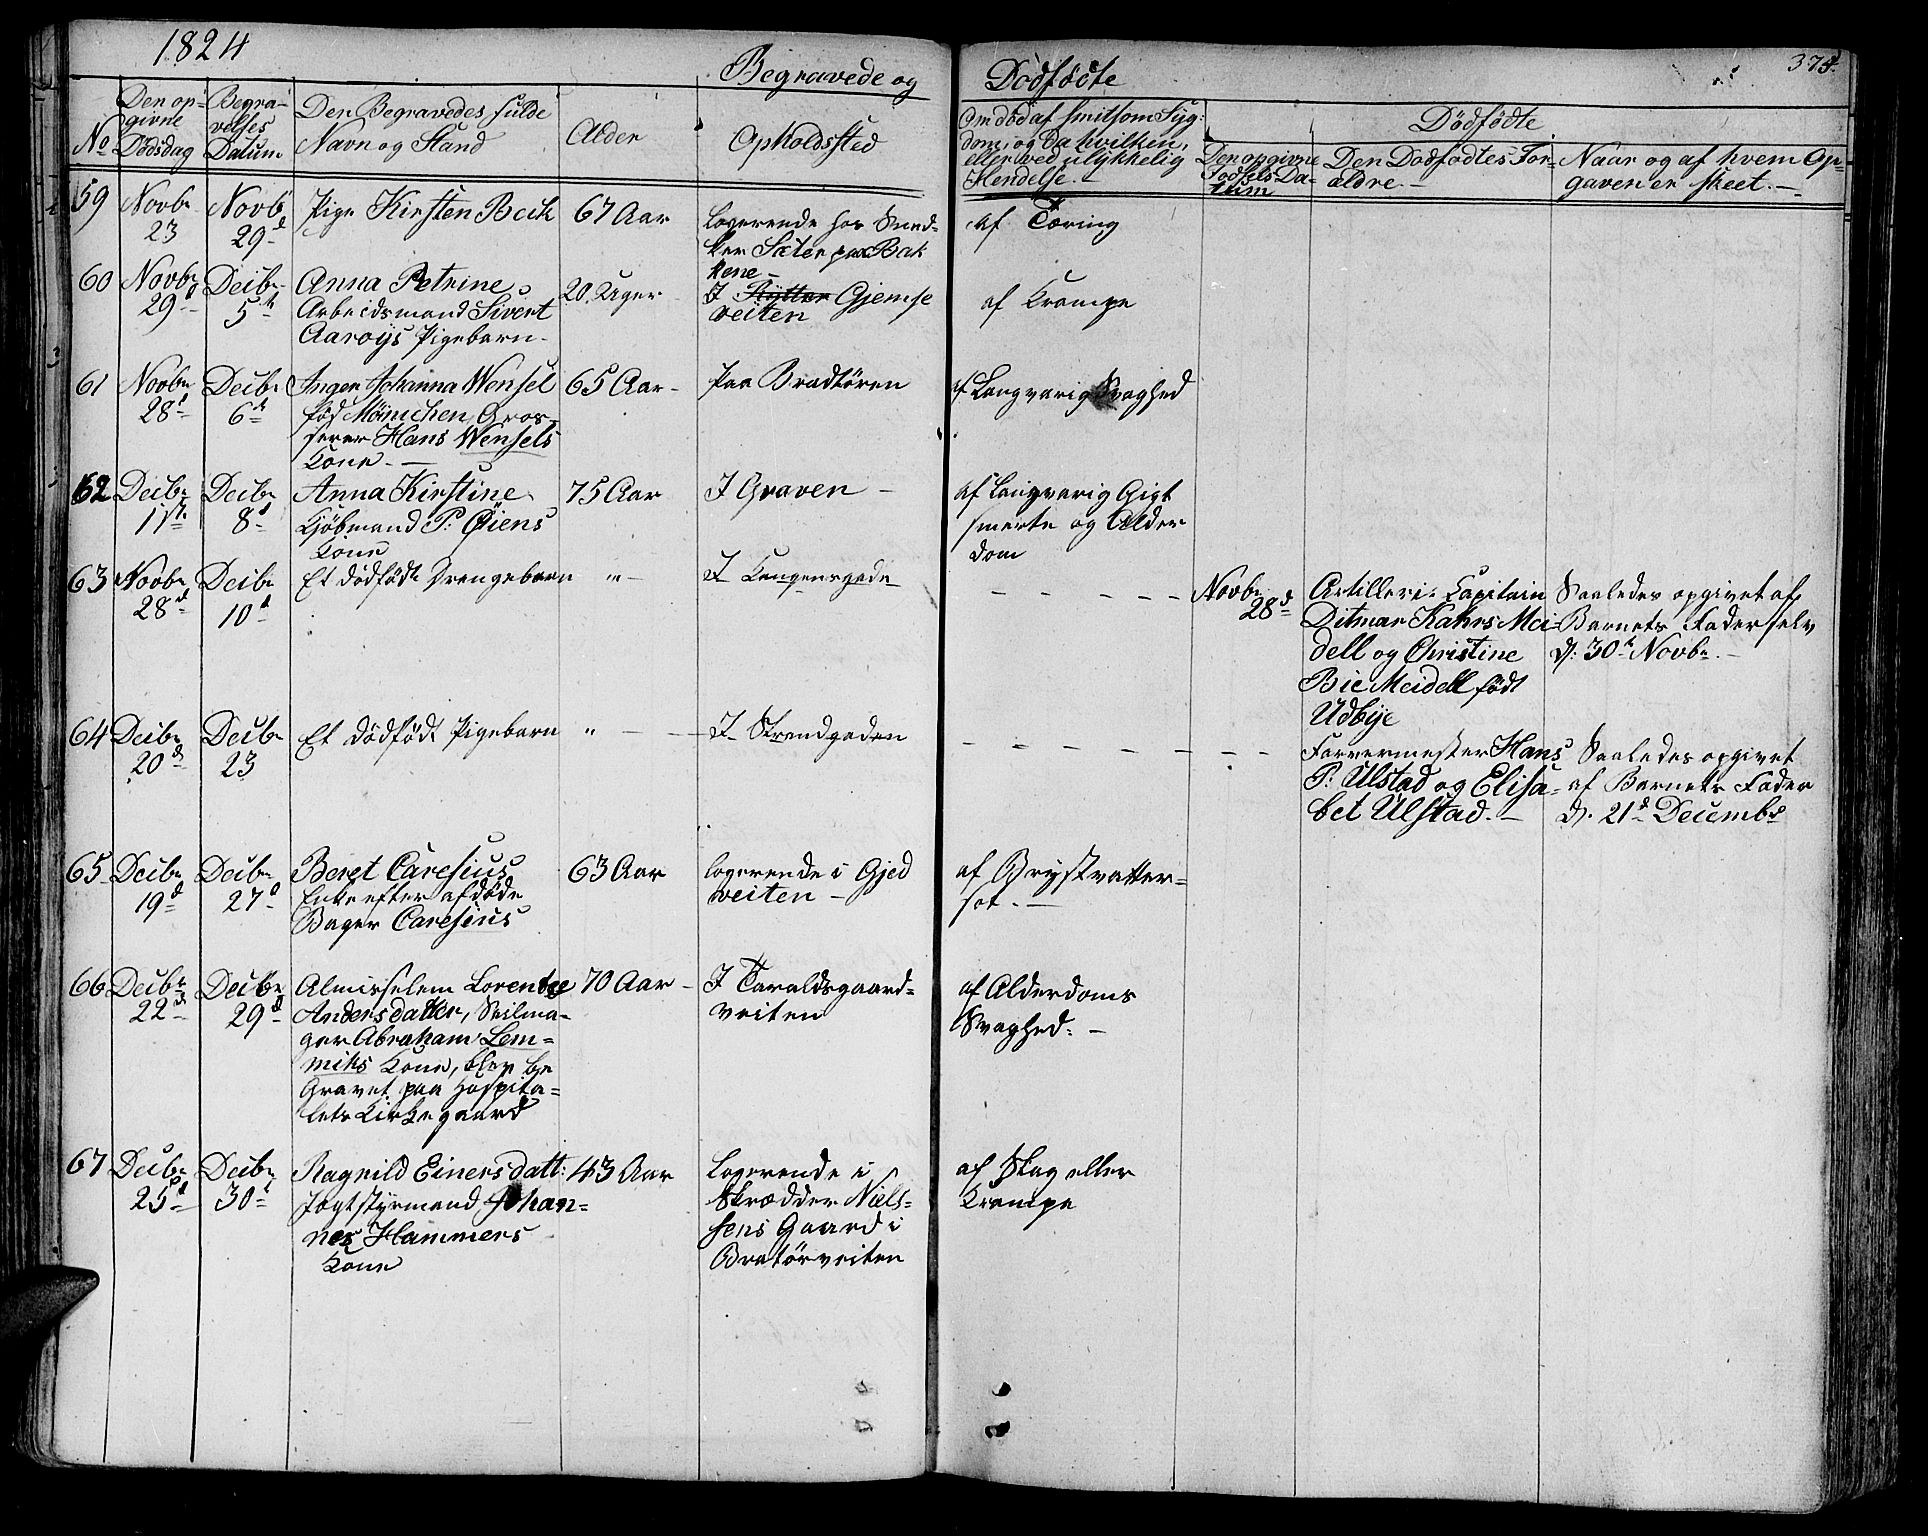 1824
Begravede og Dödfödte
375.
No
Den op-
givne
Dödsdag
Begra-
velses
Datum
Den Begravedes fulde
Navn og Stand
Alder
Opholdssted
Om död af smitsom Syg-
dom, og da hvilken,
eller ved ulykkelig
Hendelse.
Dödfödte
Den opgivne
Födsels Da-
tum
Den Dödfödtes For-
ældre.
Naar og af hvem Op-
gaven er skeet.
59 Novbr 23 Novb 29d Pige Kirsten Beck 67 Aar
Logerende hos Sned-
ker Sæter paa Bak
kene
af Tæring
60 Novbr 29d Decbr 5t Anna Petrine,
Arbeidsmand Sivert
Aaroys Pigebarn
20 Uger
I Gjemse
veiten
af Krampe
61 Novbr 28d Decbr 6t Inger Johanna Wensel
föd Mönichen Gros-
serer Hans Wensels
Kone.
65 Aar
paa Bradtören
af Langvarig Svaghed
62 Decbr 1ste Decbr 8d Anna Kirstine
Kjöbmand P: Öiens
Kone
75 Aar
I Graven
af langvarig Gigt
smerte og Alder
dom
63 Novbr 28d Decbr 10d Et dödfödt Drengebarn " I Kongensgade
Novbr 28d
Artilleri Capitain
Ditmar Kahrs Mei-
dell og Christine
Bie Meidell födt
Udbye
Saaledes opgivet af
Barnets Fader selv
d: 30t Novbr.
64 Decbr 20d Decbr 23 Et dödfödt Pigebarn " I Strandgaden
Farvermester Hans
P: Ulstad og Elisa-
bet Ulstad.
Saaledes opgivet
af Barnets Fader
d. 21d Decembr
65 Decbr 19d Decbr 27d Beret Caresius
Enke efter afdöde
Bager Caresius
63 Aar
logerende i Gjed
veiten
af Brystvatter-
sot.
66 Decbr 22d Decbr 29d Almirselem Lorentze
Andersdatter, Seilma-
ger Abraham Lem-
miks Kone, blev be
gravet paa Hospita-
lets Kirkegaard
70 Aar
I Taraldsgaard-
veiten
af Alderdoms
Svaghed.
67 Decbr 25d Decbr 30t Ragnild Einersdatt:
Jagtstyrmand Johan-
nes Hammers
Kone
43 Aar
Logerende i
Skrædder Niels-
sens Gaard i
Bratörveiten
af Slag eller
Krampe